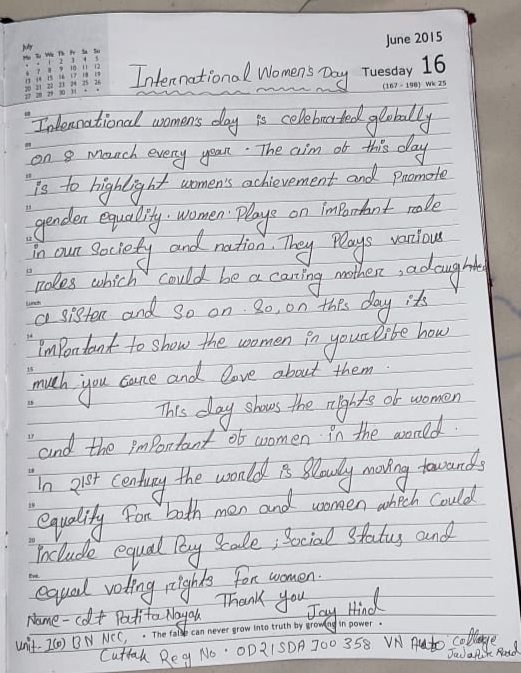 July
June 2015
Mo Tu We Th Fr Sa Su
1 2 3 4 5
6 7 8 9 10 11 12
13 14 15 16 17 18 19
20 21 22 23 24 25 26
27 28 29 30 31
International Women's Day Tuesday 16
(167 - 198) Wk 25
International women's day is celebrated globally
on 8 March every year. The aim of this day
is to highlight women's achievement and Promote
gender equality. Women Plays an important role
in our Society and nation. They Plays various
roles which could be a caring mother, a daughter
a sister and so on. So, on this day its
important to show the women in your life how
much you care and love about them.
This day shows the rights of women
and the important of women in the world.
In 21st Century the world is Slowly moving towards
equality For both men and women which Could
include equal Pay Scale, Social Status and
equal voting rights For women.
Thank you
Name - cdt Patita Nayak Jay Hind
• The false can never grow into truth by growing in power •
Unit - BN NCC,
Cuttak Reg No. OD21SDA 700 358 VN Auto College